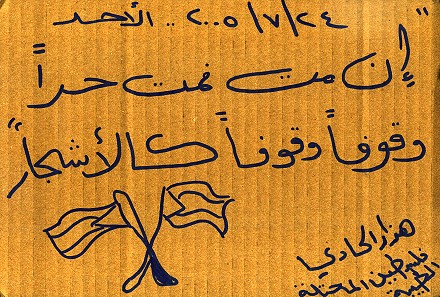 ٢٤/٧/٢٠٠٥ .. الأحد
"إن مت فمت حراً
وقوفاً وقوفاً كالأشجار"
هزار الحادي
فلسطين المحتلة
الطيبة